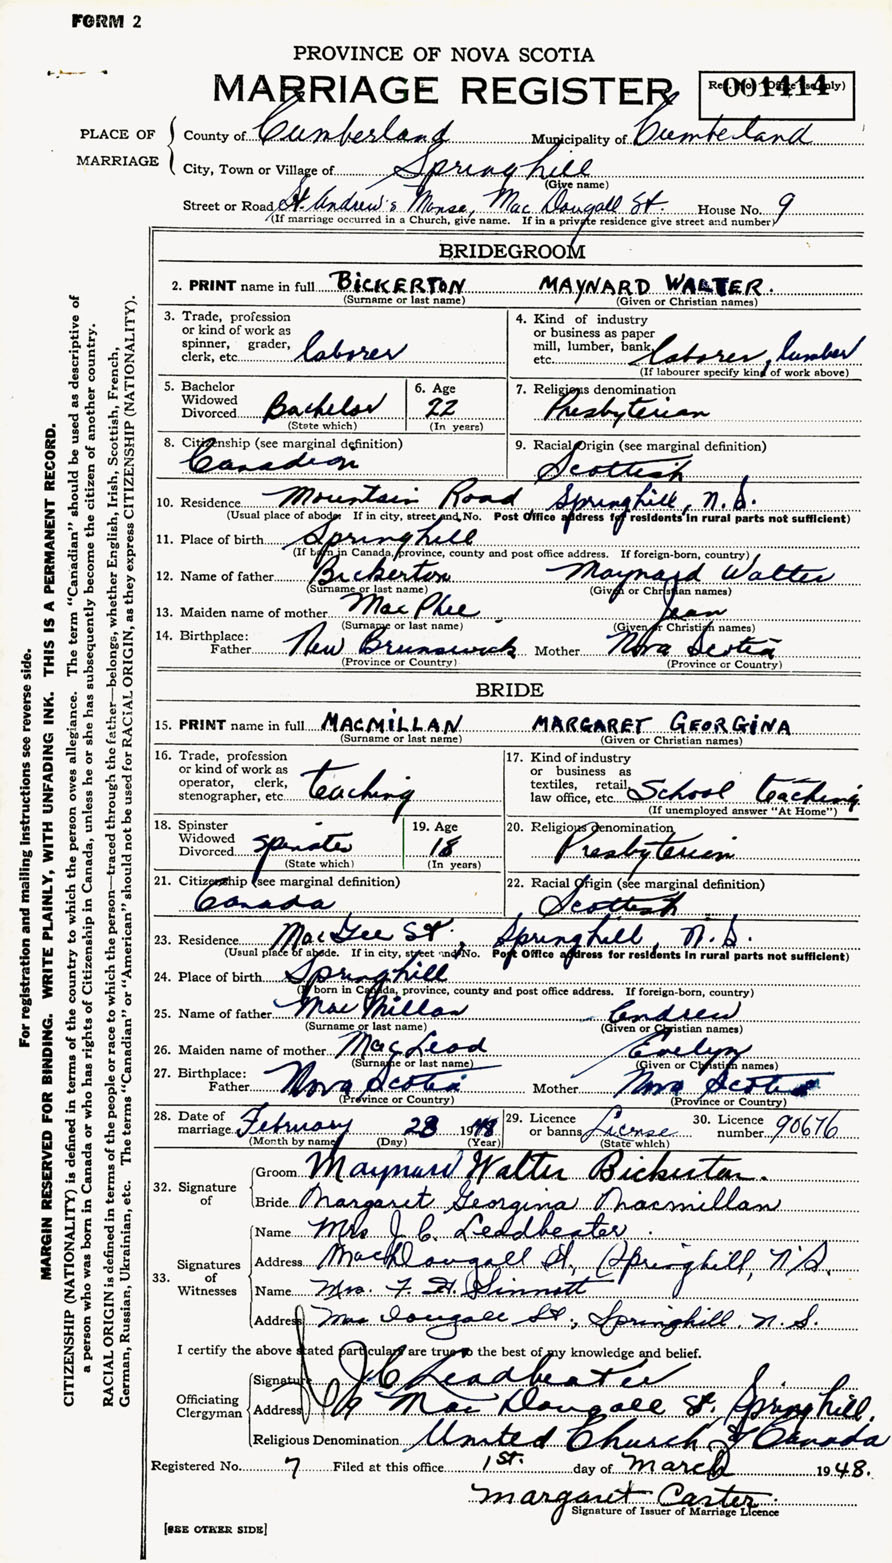 FORM 2
PROVINCE OF NOVA SCOTIA
MARRIAGE REGISTER
Reg. No. (Office use only)
001414
PLACE OF MARRIAGE
County of Cumberland Municipality of Cumberland
City, Town or Village of Springhill
(Give name)
Street or Road St. Andrew's Manse, MacDougall St. House No. 9
(If marriage occurred in a Church, give name. If in a private residence give street and number)
BRIDEGROOM
2. PRINT name in full BICKERTON MAYNARD WALTER.
(Surname or last name) (Given or Christian names)
3. Trade, profession or kind of work as spinner, grader, clerk, etc. laborer
4. Kind of industry or business as paper mill, lumber, bank, etc. laborer, lumber
(If labourer specify kind of work above)
5. Bachelor Widowed Divorced Bachelor
(State which)
6. Age 22
(In years)
7. Religious denomination Presbyterian
8. Citizenship (see marginal definition) Canadian
9. Racial Origin (see marginal definition) Scottish
10. Residence Mountain Road Springhill, N.S.
(Usual place of abode. If in city, street and No. Post Office address for residents in rural parts not sufficient)
11. Place of birth Springhill
(If born in Canada, province, county and post office address. If foreign-born, country)
12. Name of father Bickerton Maynard Walter
(Surname or last name) (Given or Christian names)
13. Maiden name of mother MacPhee Jean
(Surname or last name) (Given or Christian names)
14. Birthplace: Father New Brunswick Mother Nova Scotia
(Province or Country) (Province or Country)
BRIDE
15. PRINT name in full MACMILLAN MARGARET GEORGINA
(Surname or last name) (Given or Christian names)
16. Trade, profession or kind of work as operator, clerk, stenographer, etc. teaching
17. Kind of industry or business as textiles, retail, law office, etc. School teaching
(If unemployed answer "At Home")
18. Spinster Widowed Divorced spinster
(State which)
19. Age 18
(In years)
20. Religious denomination Presbyterian
21. Citizenship (see marginal definition) Canada
22. Racial Origin (see marginal definition) Scottish
23. Residence MacGee St., Springhill, N.S.
(Usual place of abode. If in city, street and No. Post Office address for residents in rural parts not sufficient)
24. Place of birth Springhill
(If born in Canada, province, county and post office address. If foreign-born, country)
25. Name of father MacMillan Andrew
(Surname or last name) (Given or Christian names)
26. Maiden name of mother MacLeod Evelyn
(Surname or last name) (Given or Christian names)
27. Birthplace: Father Nova Scotia Mother Nova Scotia
(Province or Country) (Province or Country)
28. Date of marriage February 28 1948
(Month by name) (Day) (Year)
29. Licence or banns License
(State which)
30. Licence number 90676
32. Signature of
Groom Maynard Walter Bickerton.
Bride Margaret Georgina Macmillan
33. Signatures of Witnesses
Name Mrs J. C. Leadbeater
Address MacDougall St, Springhill, N.S.
Name Mrs. F. H. Sinnott
Address Mac Dougall St., Springhill. N.S.
I certify the above stated particulars are true to the best of my knowledge and belief.
Officiating Clergyman
Signature J C Leadbeater
Address 9 MacDougall St. Springhill.
Religious Denomination United Church of Canada
Registered No. 7 Filed at this office 1st. day of March 1948.
Margaret Carter.
Signature of Issuer of Marriage Licence
[SEE OTHER SIDE]
For registration and mailing instructions see reverse side.
MARGIN RESERVED FOR BINDING. WRITE PLAINLY, WITH UNFADING INK. THIS IS A PERMANENT RECORD.
CITIZENSHIP (NATIONALITY) is defined in terms of the country to which the person owes allegiance. The term "Canadian" should be used as descriptive of
a person who was born in Canada or who has rights of Citizenship in Canada, unless he or she has subsequently become the citizen of another country.
RACIAL ORIGIN is defined in terms of the people or race to which the person—traced through the father—belongs, whether English, Irish, Scottish, French,
German, Russian, Ukrainian, etc. The terms "Canadian" or "American" should not be used for RACIAL ORIGIN, as they express CITIZENSHIP (NATIONALITY).